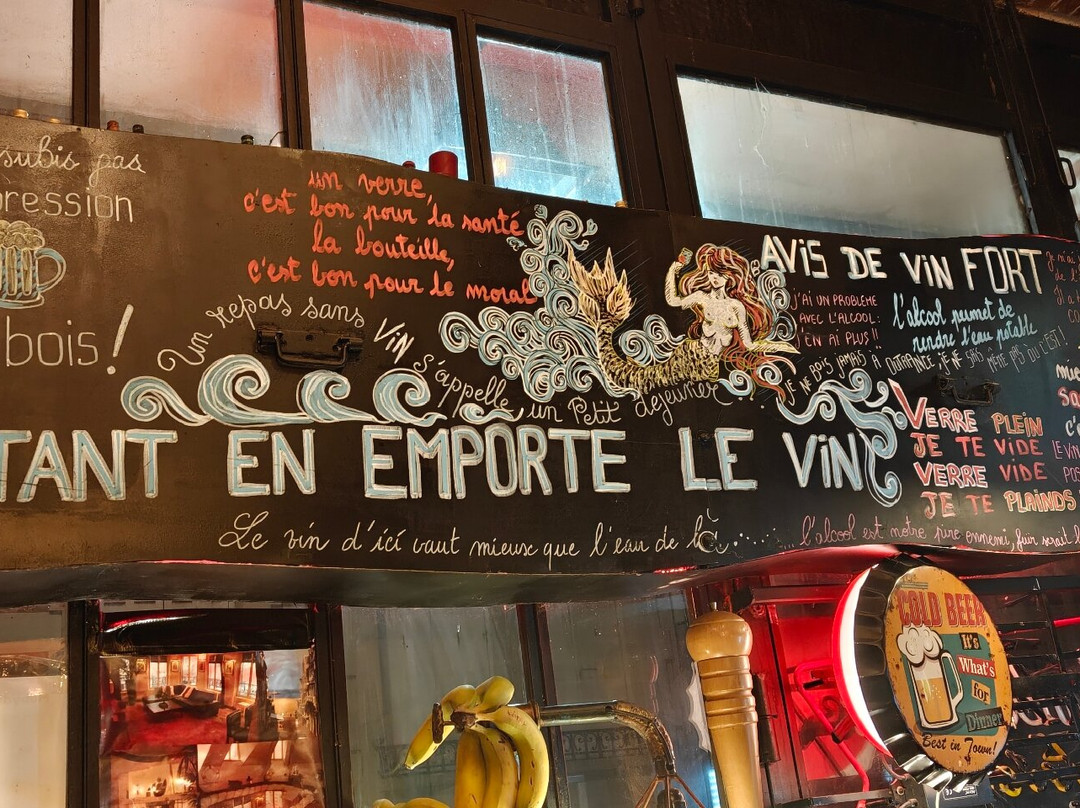 subis pas
pression
bois!
un verre,
c'est bon pour la santé
la bouteille,
c'est bon pour le moral
Un repas sans Vin s'appelle un Petit déjeuner
TANT EN EMPORTE LE VIN
Le vin d'ici vaut mieux que l'eau de là....
AVIS DE VIN FORT
J'AI UN PROBLEME
AVEC L'ALCOOL:
J'EN AI PLUS!!
l'alcool permet de
rendre l'eau potable
JE NE BOIS JAMAIS À OUTRANCE, JE NE SAIS MÊME PAS OÙ C'EST!
VERRE PLEIN
JE TE VIDE
VERRE VIDE
JE TE PLAINDS
... l'alcool est notre pire ennemi, fuir serait
COLD BEER
It's
What's
for
Dinner
Best in Town!